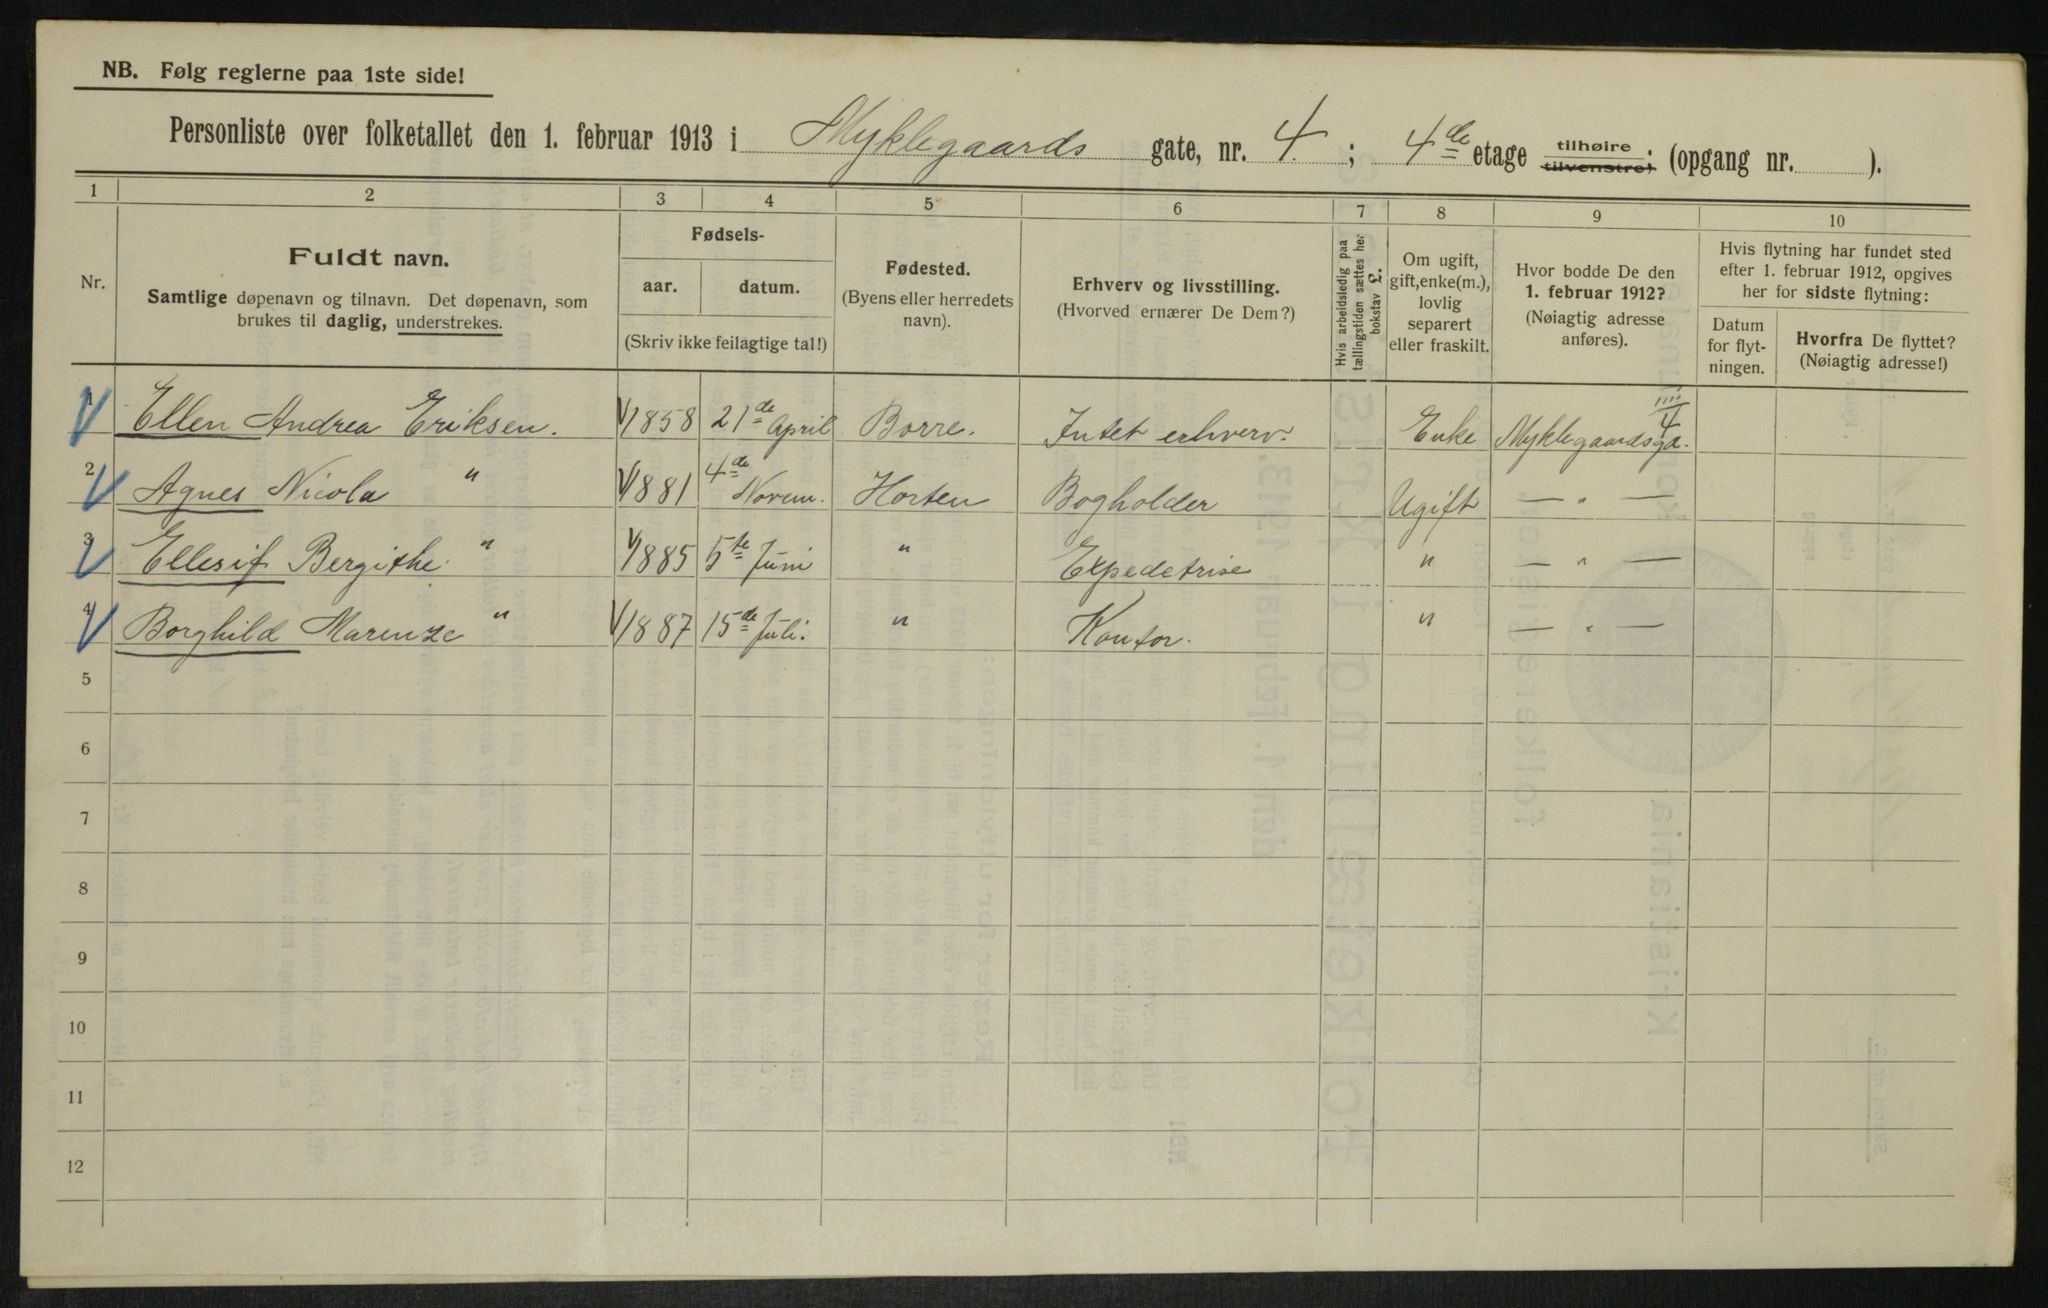 NB. Følg reglerne paa 1ste side!
Personliste over folketallet den 1. februar 1913 i Myklegaards gate, nr. 4. ; 4de etage tilhøire tilvenstre; (opgang nr. ).
1 2 3 4 5 6 7 8 9 10
Nr.
Fuldt navn.
Samtlige døpenavn og tilnavn. Det døpenavn, som
brukes til daglig, understrekes.
Fødsels-
aar. datum.
(Skriv ikke feilagtige tal!)
Fødested.
(Byens eller herredets
navn).
Erhverv og livsstilling.
(Hvorved ernærer De Dem?)
Hvis arbeidsledig paa
tællingstiden sættes her
bokstav £.
Om ugift,
gift, enke(m.),
lovlig
separert
eller fraskilt.
Hvor bodde De den
1. februar 1912?
(Nøiagtig adresse
anføres).
Hvis flytning har fundet sted
efter 1. februar 1912, opgives
her for sidste flytning:
Datum
for flyt-
ningen.
Hvorfra De flyttet?
(Nøiagtig adresse!)
1 Ellen Andrea Eriksen. 1858 21de April Borre. Intet erhverv. Enke Myklegaardsga. 4
2 Agnes Nicola " 1881 4de Novem. Horten Bogholder Ugift — " —
3 Ellesif Bergithe " 1885 5te Juni " Expedetrise " — " —
4 Borghild Marenze " 1887 15de Juli. " Kontor. " — " —
5
6
7
8
9
10
11
12